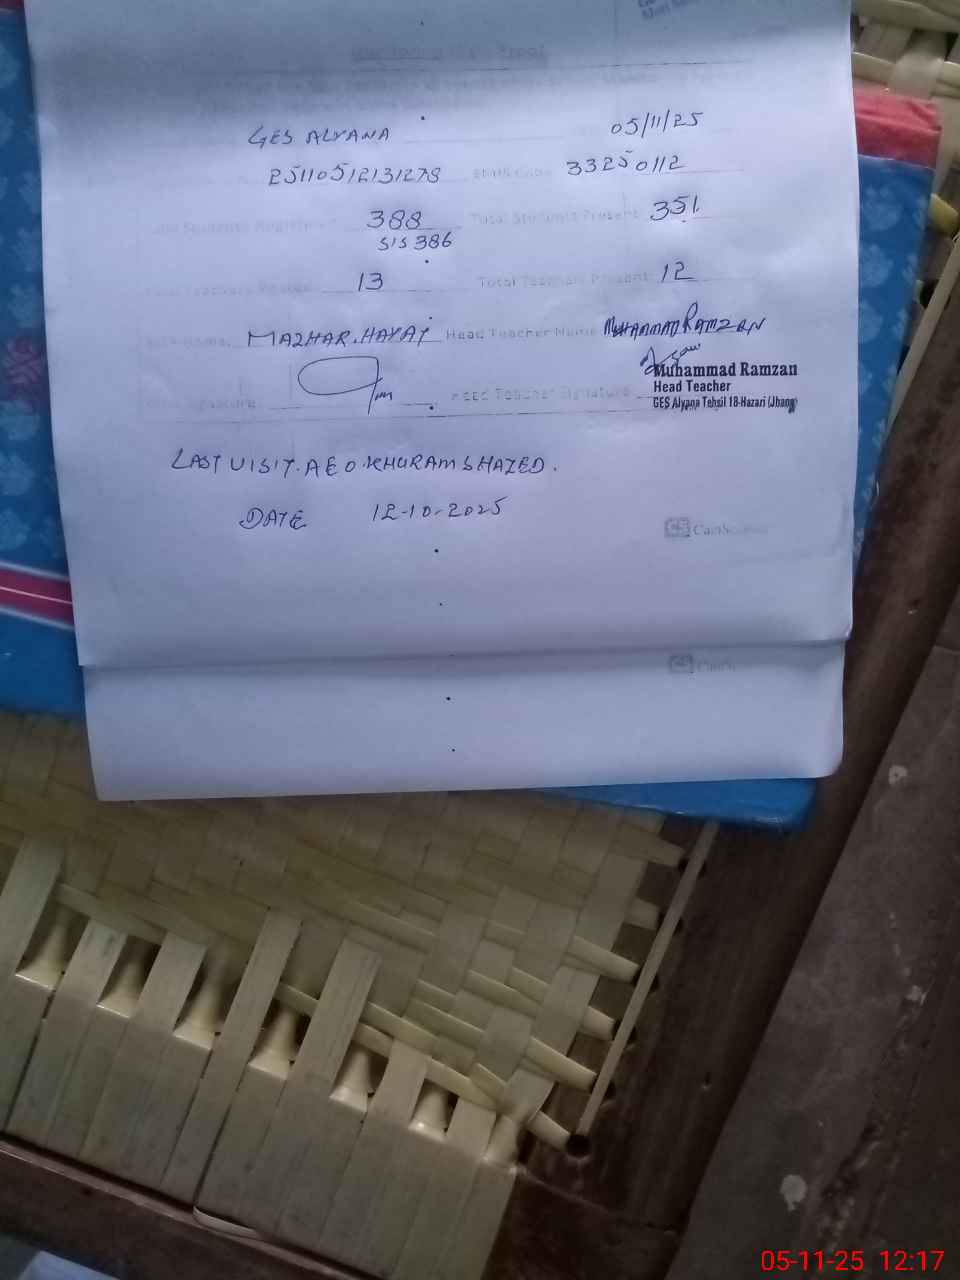 GES ALYANA 05/11/25
25110512131278 EMIS Code 33250112
388 Total Students Present 351
SIS 386
13 Total Teachers Present 12
MAZHAR.HAYAT Head Teacher Name MUHAMMAD RAMZAN
Muhammad Ramzan
Head Teacher Signature Head Teacher
GES Alyana Tehsil 18-Hazari (Jhang)
LAST VISIT. A E O. KHURAM SHAZED.
DATE 12-10-2025
CS CamScanner
CS
05-11-25 12:17